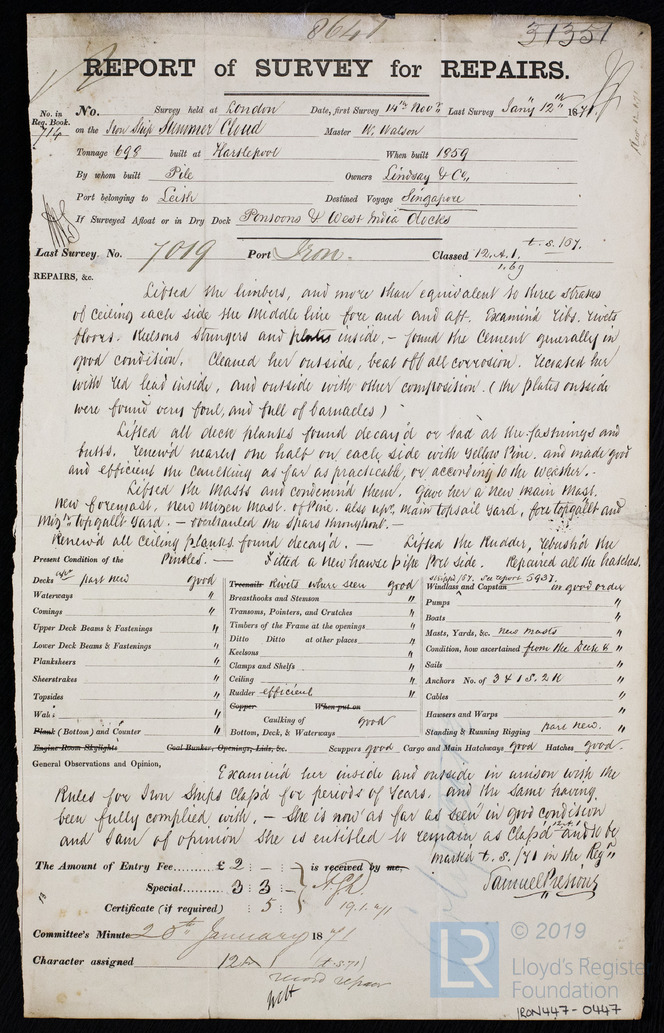 8647
31351
REPORT of SURVEY for REPAIRS.
No. in Reg. Book. 714
No. Survey held at London Date, first Survey 14th Novr Last Survey Jany 12th 1871
on the Iron Ship Summer Cloud Master W. Watson
Tonnage 698 built at Hartlepool When built 1859
By whom built Pile Owners Lindsay & Co,,
Port belonging to Leith Destined Voyage Singapore
If Surveyed Afloat or in Dry Dock Pontoons & West India docks
Last Survey No. 7019 Port Iron. Classed 12. A. 1. t. s. /67.
1.69
REPAIRS, &c.
Lifted the limbers, and more than equivalent to three strakes
of ceiling each side the middle line fore and and aft. Examin'd ribs. rivets
floors. Keelsons Stringers and plates inside, – found the Cement generally in
good condition. Cleaned her outside, beat off all corrosion. recoated her
with red lead inside, and outside with other composition. (the plates outside
were found very foul, and full of barnacles)
Lifted all deck planks found decay'd or bad at the fastnings and
butts. renew'd nearly one half on each side with Yellow Pine. and made good
and efficient the caulking as far as practicable, or according to the weather. –
Lifted the Masts and condemn'd them. Gave her a new main mast.
New foremast, new Mizen mast. of Pine. also upr. main topsail Yard, fore topgallt and
Mizn topgallt Yard. – overhauled the spars throughout. –
Renew'd all Ceiling planks found decay'd. – Lifted the Rudder, rebush'd the
Pintles. – Fitted a new hawse pipe Port side. Repaired all the hatches.
Present Condition of the
Decks upr part new good
Waterways "
Comings "
Upper Deck Beams & Fastenings "
Lower Deck Beams & Fastenings "
Planksheers "
Sheerstrakes "
Topsides "
Wales "
Plank (Bottom) and Counter "
Engine Room Skylights
Treenails Rivets where seen good
Breasthooks and Stemson "
Transoms, Pointers, and Crutches "
Timbers of the Frame at the openings "
Ditto Ditto at other places "
Keelsons "
Clamps and Shelfs "
Ceiling "
Rudder efficient "
Copper When put on
Caulking of good
Bottom, Deck, & Waterways
Coal Bunker, Openings, Lids, &c.
Scuppers good
stripp'd /67. See report 5937.
Windlass and Capstan in good order
Pumps "
Boats "
Masts, Yards, &c. new masts "
Condition, how ascertained from the Deck & "
Sails "
Anchors No. of 3 & 1 S. 2 K "
Cables "
Hawsers and Warps "
Standing & Running Rigging part new. "
Cargo and Main Hatchways good Hatches good.
General Observations and Opinion,
Examin'd her inside and outside in unison with the
Rules for Iron Ships Class'd for periods of Years. and the same having
been fully complied with. – She is now as far as seen in good condition
and I am of opinion She is entitled to remain as Class'd and to be
mark'd t. s. /71 in the Regr
Samuel Pretious
The Amount of Entry Fee...... £ 2 : – : – is received by me,
Special...... 3 : 3 : –
Certificate (if required) : 5 : 19.1.71
Committee's Minute 20th January 1871
Character assigned 12 A 1 (t.s. 71)
record repair
LR
© 2019
Lloyd's Register
Foundation
IRON447-0447